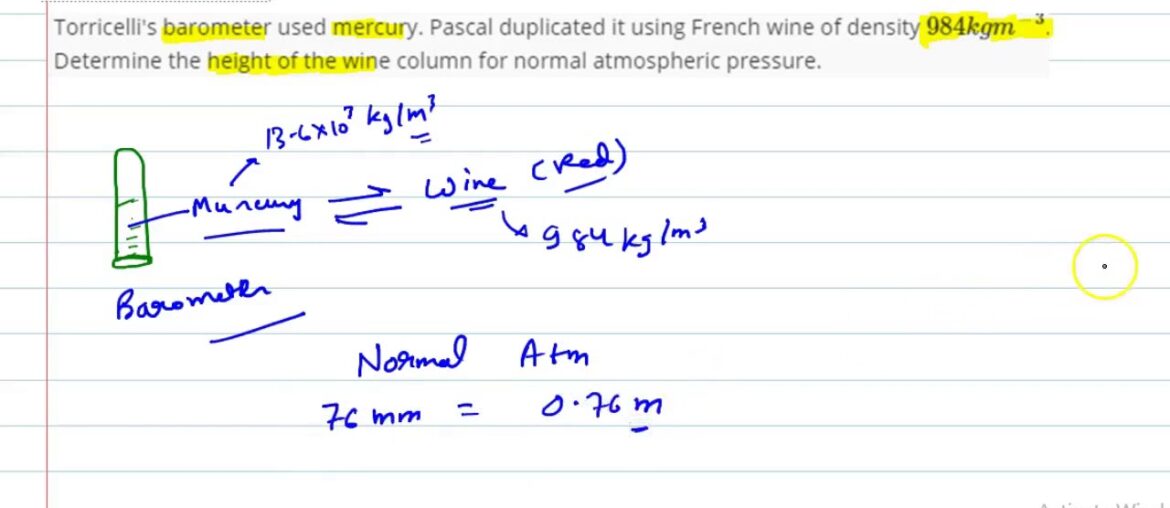 Torricelli's barometer used mercury. Pascal duplicated it using French wine of density 984kgm⁻³.
Determine the height of the wine column for normal atmospheric pressure.
13.6×10³ kg/m³
Mercury
Wine (Red)
984 kg/m³
Barometer
Normal Atm
76 mm = 0.76 m